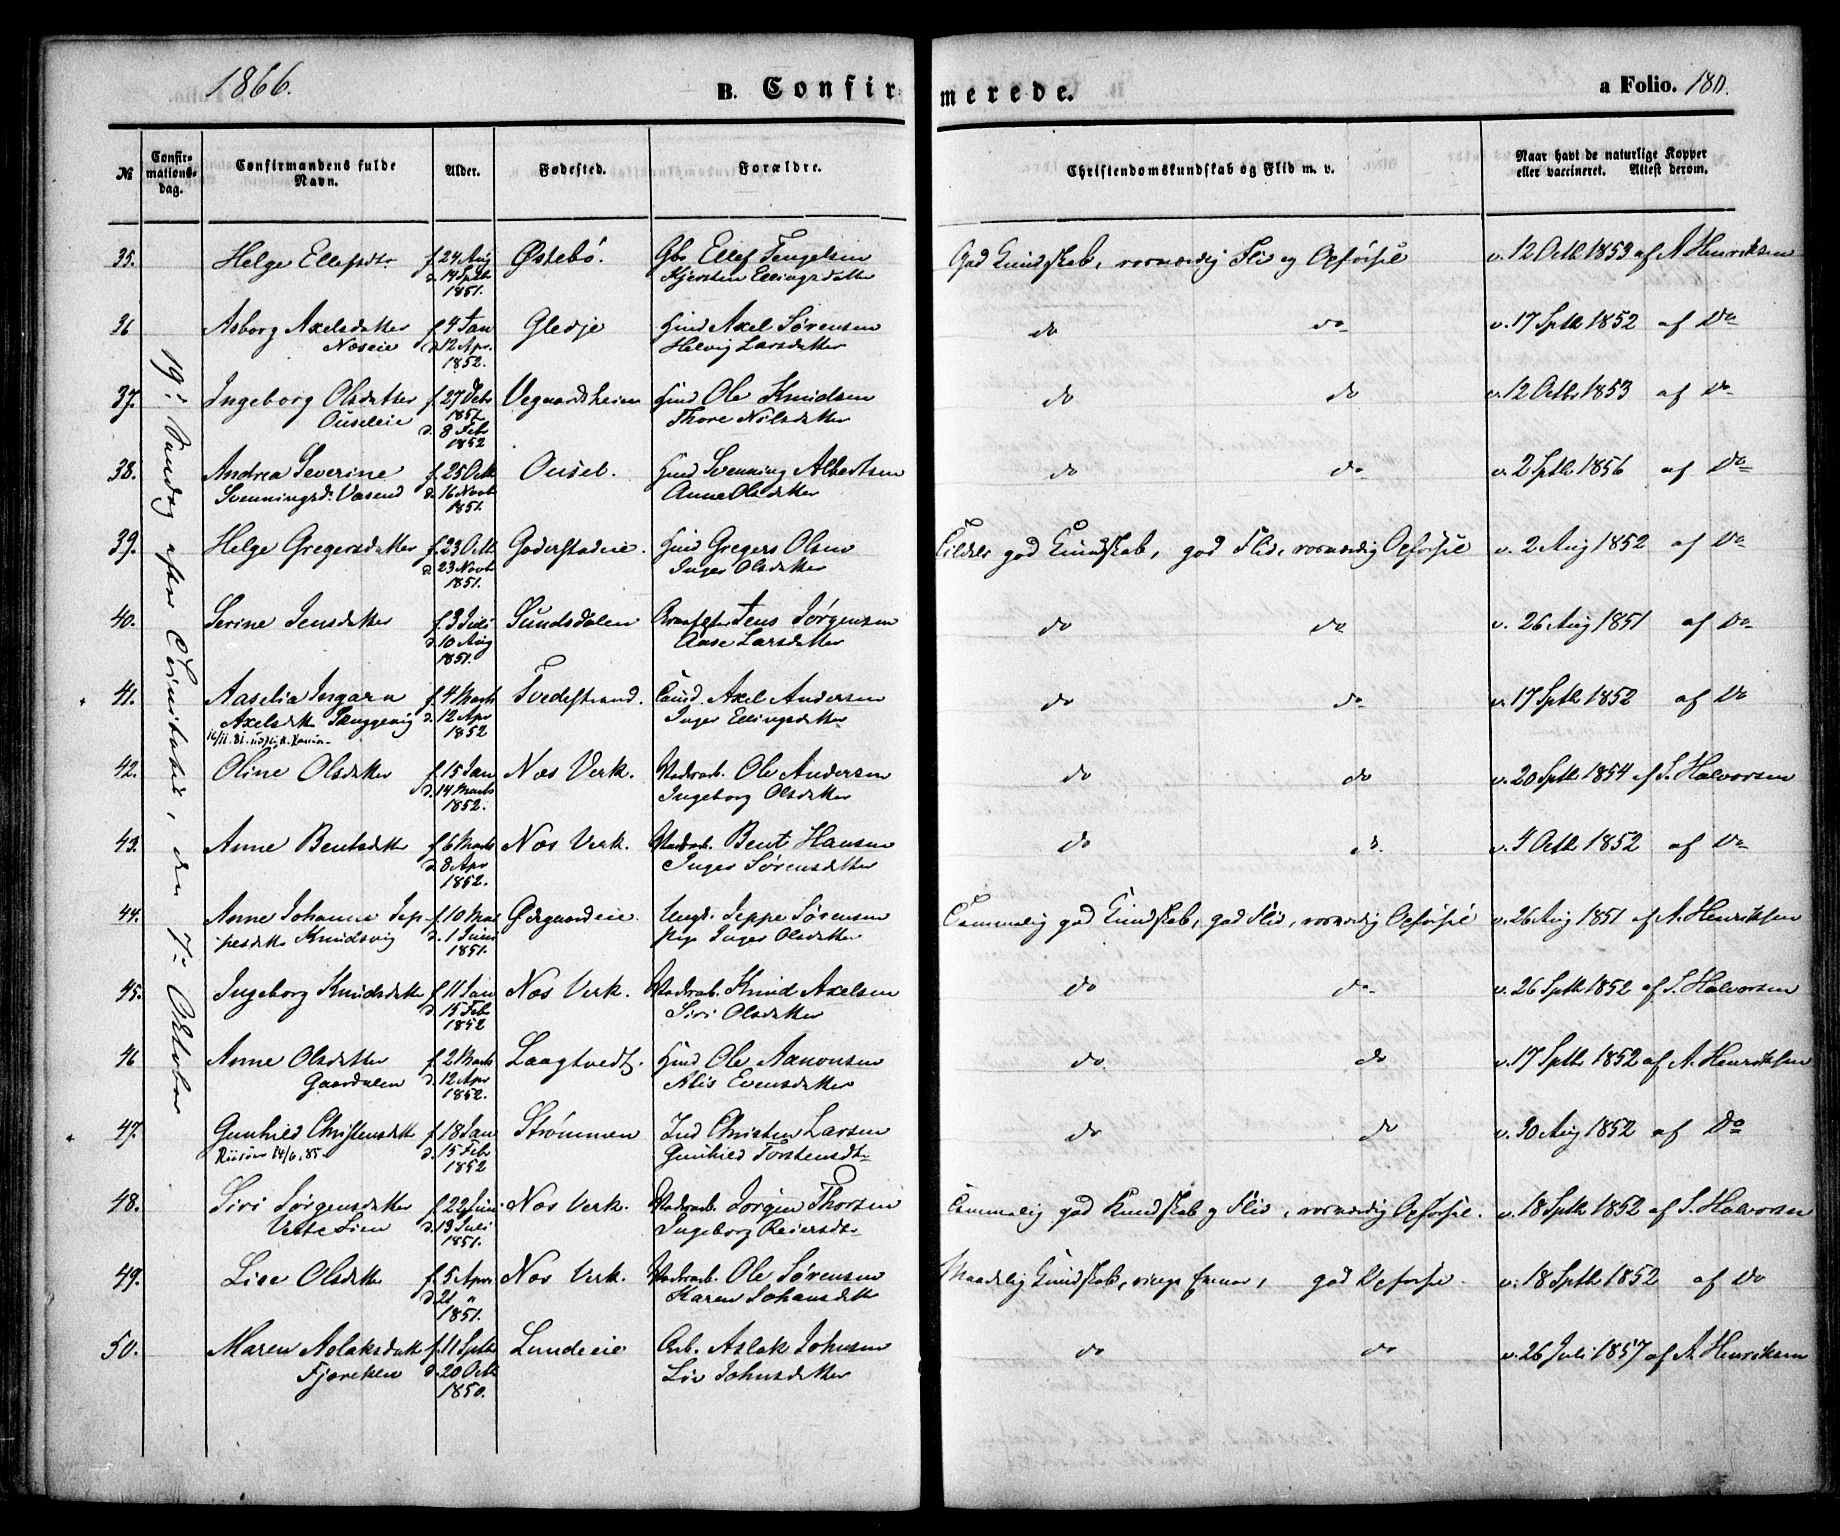 1866.
B. Confirmerede.
a Folio. 180.
№
Confirmationsdag.
Confirmandens fulde Navn.
Alder.
Fødested.
Forældre.
Christendomskundskab og Flid m. v.
Naar havt de naturlige Kopper eller vaccineret. Attest derom.
19: Søndag efter Trinitatis, den 7: Oktober
35. Helge Ellefsdtr f. 24 Aug Østebö. Gbr Ellef Tengelsen God Kundskab, rosværdig Flid og Opførsel v. 12 Octb 1853 af A Henriksen
d. 14 Sptb Kjersten Ellingsdatter
1851.
36 Asborg Axelsdatter f. 4 Jan Gledje Hmd Axel Sørensen do do v. 17 Sptb 1852 af Do
Næseie d. 12 Apr. Helvig Larsdatter
1852.
37. Ingeborg Olsdatter f. 27 Debr Vegaardsheim Hmd Ole Knudsen do do v. 12 Octbr 1853 af Do
Ouseleie 1851 Thore Nilsdatter
d. 8 Febr
1852
38. Andrea Severine f. 25 Octb Ousel. Hmd Svenning Albertsen do do v. 2 Sptb 1856 af Do
Svenningsd. Vasend d. 16 Novb Anne Olsdatter
1851.
39. Helge Gregersdatter f. 23 Octb Goderstadeie. Hmd Gregers Olsen Tildels god Kundskab, god Flid, rosværdig Opførsel v. 2 Aug 1852 af Do
d. 23 Novb Inger Olsdatter
1851.
40. Serine Jensdatter f. 3 Juli Sundsdalen Jens Jørgensen do do v. 26 Aug 1851 af Do
d. 10 Aug Aase Larsdatter
1851.
41. Aaselia Ingara f. 4 Marts Tvedestrand. Axel Andersen do do v. 17 Sptb 1852 af Do
Axelsdtr Skuggevig d. 12 Apr Inger Ellingsdatter
16/11.81. 1852
42. Oline Olsdatter f. 15 Jan Næs Verk. Værksarb. Ole Andersen do do v. 20 Sptb 1854 af S. Halvorsen
d. 14 Marts Ingeborg Olsdatter
1852.
43. Anne Bentsdatter f. 6 Marts Næs Verk. Værksarb. Bent Hansen do do v. 4 Octb 1852 af Do
d. 8 Apr Inger Sørensdatter
1852.
44. Anne Johanne Jep- f. 10 Mai Øigaardeie. Ungk. Jeppe Sørensen Temmelig god Kundskab, god Flid, rosværdig Opførsel v. 26 Aug 1851 af A. Henriksen
pesdtr Knudsvig d. 1 Juni Pige Inger Olsdatter
1851.
45. Ingeborg Knudsdatter f. 11 Jan Næs Verk. Værksarb. Knud Axelsen do do v. 26 Sptb 1852 af S. Halvorsen
d. 15 Feb Siri Olsdatter
1852
46 Anne Olsdatter f. 2 Marts Laagtvedt. Hmd Ole Aanonsen do do v. 17 Sptb 1852 af A. Henriksen
Gaardalen d. 12 Apr Alis Evensdatter
1852.
47. Gunhild Christensdtr f. 18 Jan Strømmen Ind Christen Larsen do do v. 30 Aug 1852 af Do
Riisöer 14/6.85. d. 15 Feb Gunhild Torstensdtr
1852
48. Siri Jørgensdatter f. 22 Juni Næs Verk. Værksarb. Jørgen Thorsen Temmelig god Kundskab og Flid, rosværdig Opførsel. v. 18 Sptb 1852 af S. Halvorsen
Vestelien d. 13 Juli Ingeborg Reiersdtr
1851.
49. Lise Olsdatter f. 5 Apr. Næs Verk. Værksarb. Ole Sørensen Maadelig Kundskab, ringe Evner, god Opførsel. v. 18 Sptb 1852 af Do
d. 21 " Karen Johansdatter
1851.
50. Maren Aslaksdatter f. 11 Sptb Lundeeie Arb. Aslak Johnsen do do v. 26 Juli 1857 af A Henriksen
Fjæreklev d. 20 Octb Liv Johnsdatter
1850.